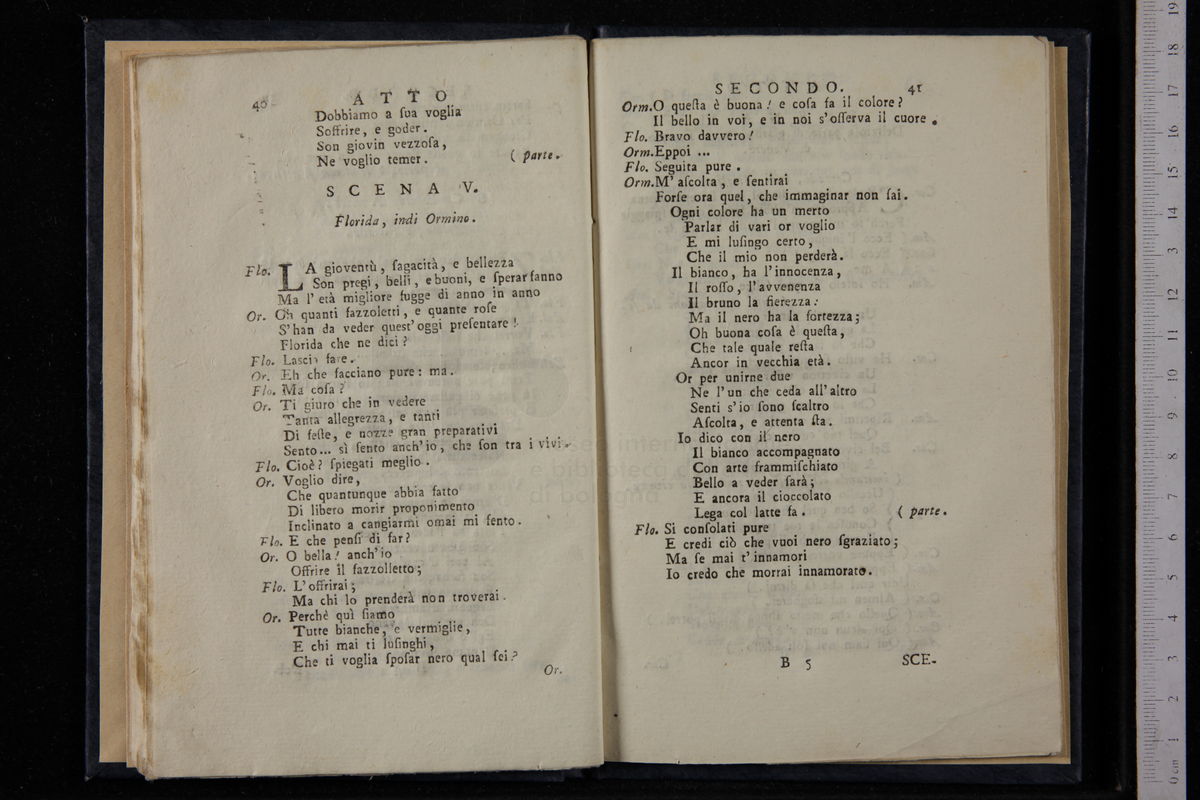 40
ATTO
Dobbiamo a ſua voglia
Soffrire, e goder.
Son giovin vezzoſa,
Ne voglio temer. ( parte.
SCENA V.
Florida, indi Ormino.
Flo. LA gioventù, ſagacità, e bellezza
Son pregi, belli, e buoni, e ſperar fanno
Ma l'età migliore fugge di anno in anno
Or. Oh quanti fazzoletti, e quante roſe
S'han da veder quest'oggi preſentare!
Florida che ne dici?
Flo. Lascia fare.
Or. Eh che facciano pure: ma.
Flo. Ma coſa?
Or. Ti giuro che in vedere
Tanta allegrezza, e tanti
Di feſte, e nozze gran preparativi
Sento... sì ſento anch'io, che ſon tra i vivi.
Flo. Cioè? ſpiegati meglio.
Or. Voglio dire,
Che quantunque abbia fatto
Di libero morir proponimento
Inclinato a cangiarmi omai mi ſento.
Flo. E che penſi di far?
Or. O bella! anch'io
Offrire il fazzolletto;
Flo. L'offrirai;
Ma chi lo prenderà non troverai.
Or. Perchè quì ſiamo
Tutte bianche, e vermiglie,
E chi mai ti luſinghi,
Che ti voglia ſpoſar nero qual ſei?
Or.
SECONDO. 41
Orm. O queſta è buona! e coſa fa il colore?
Il bello in voi, e in noi s'oſſerva il cuore.
Flo. Bravo davvero!
Orm. Eppoi ...
Flo. Seguita pure.
Orm. M'aſcolta, e ſentirai
Forſe ora quel, che immaginar non ſai.
Ogni colore ha un merto
Parlar di vari or voglio
E mi luſingo certo,
Che il mio non perderà.
Il bianco, ha l'innocenza,
Il roſſo, l'avvenenza
Il bruno la fierezza:
Ma il nero ha la fortezza;
Oh buona coſa è queſta,
Che tale quale reſta
Ancor in vecchia età.
Or per unirne due
Ne l'un che ceda all'altro
Senti s'io ſono ſcaltro
Aſcolta, e attenta ſta.
Io dico con il nero
Il bianco accompagnato
Con arte frammiſchiato
Bello a veder ſarà;
E ancora il cioccolato
Lega col latte fa. ( parte.
Flo. Si conſolati pure
E credi ciò che vuoi nero ſgraziato;
Ma ſe mai t'innamori
Io credo che morrai innamorato.
B 5 SCE-